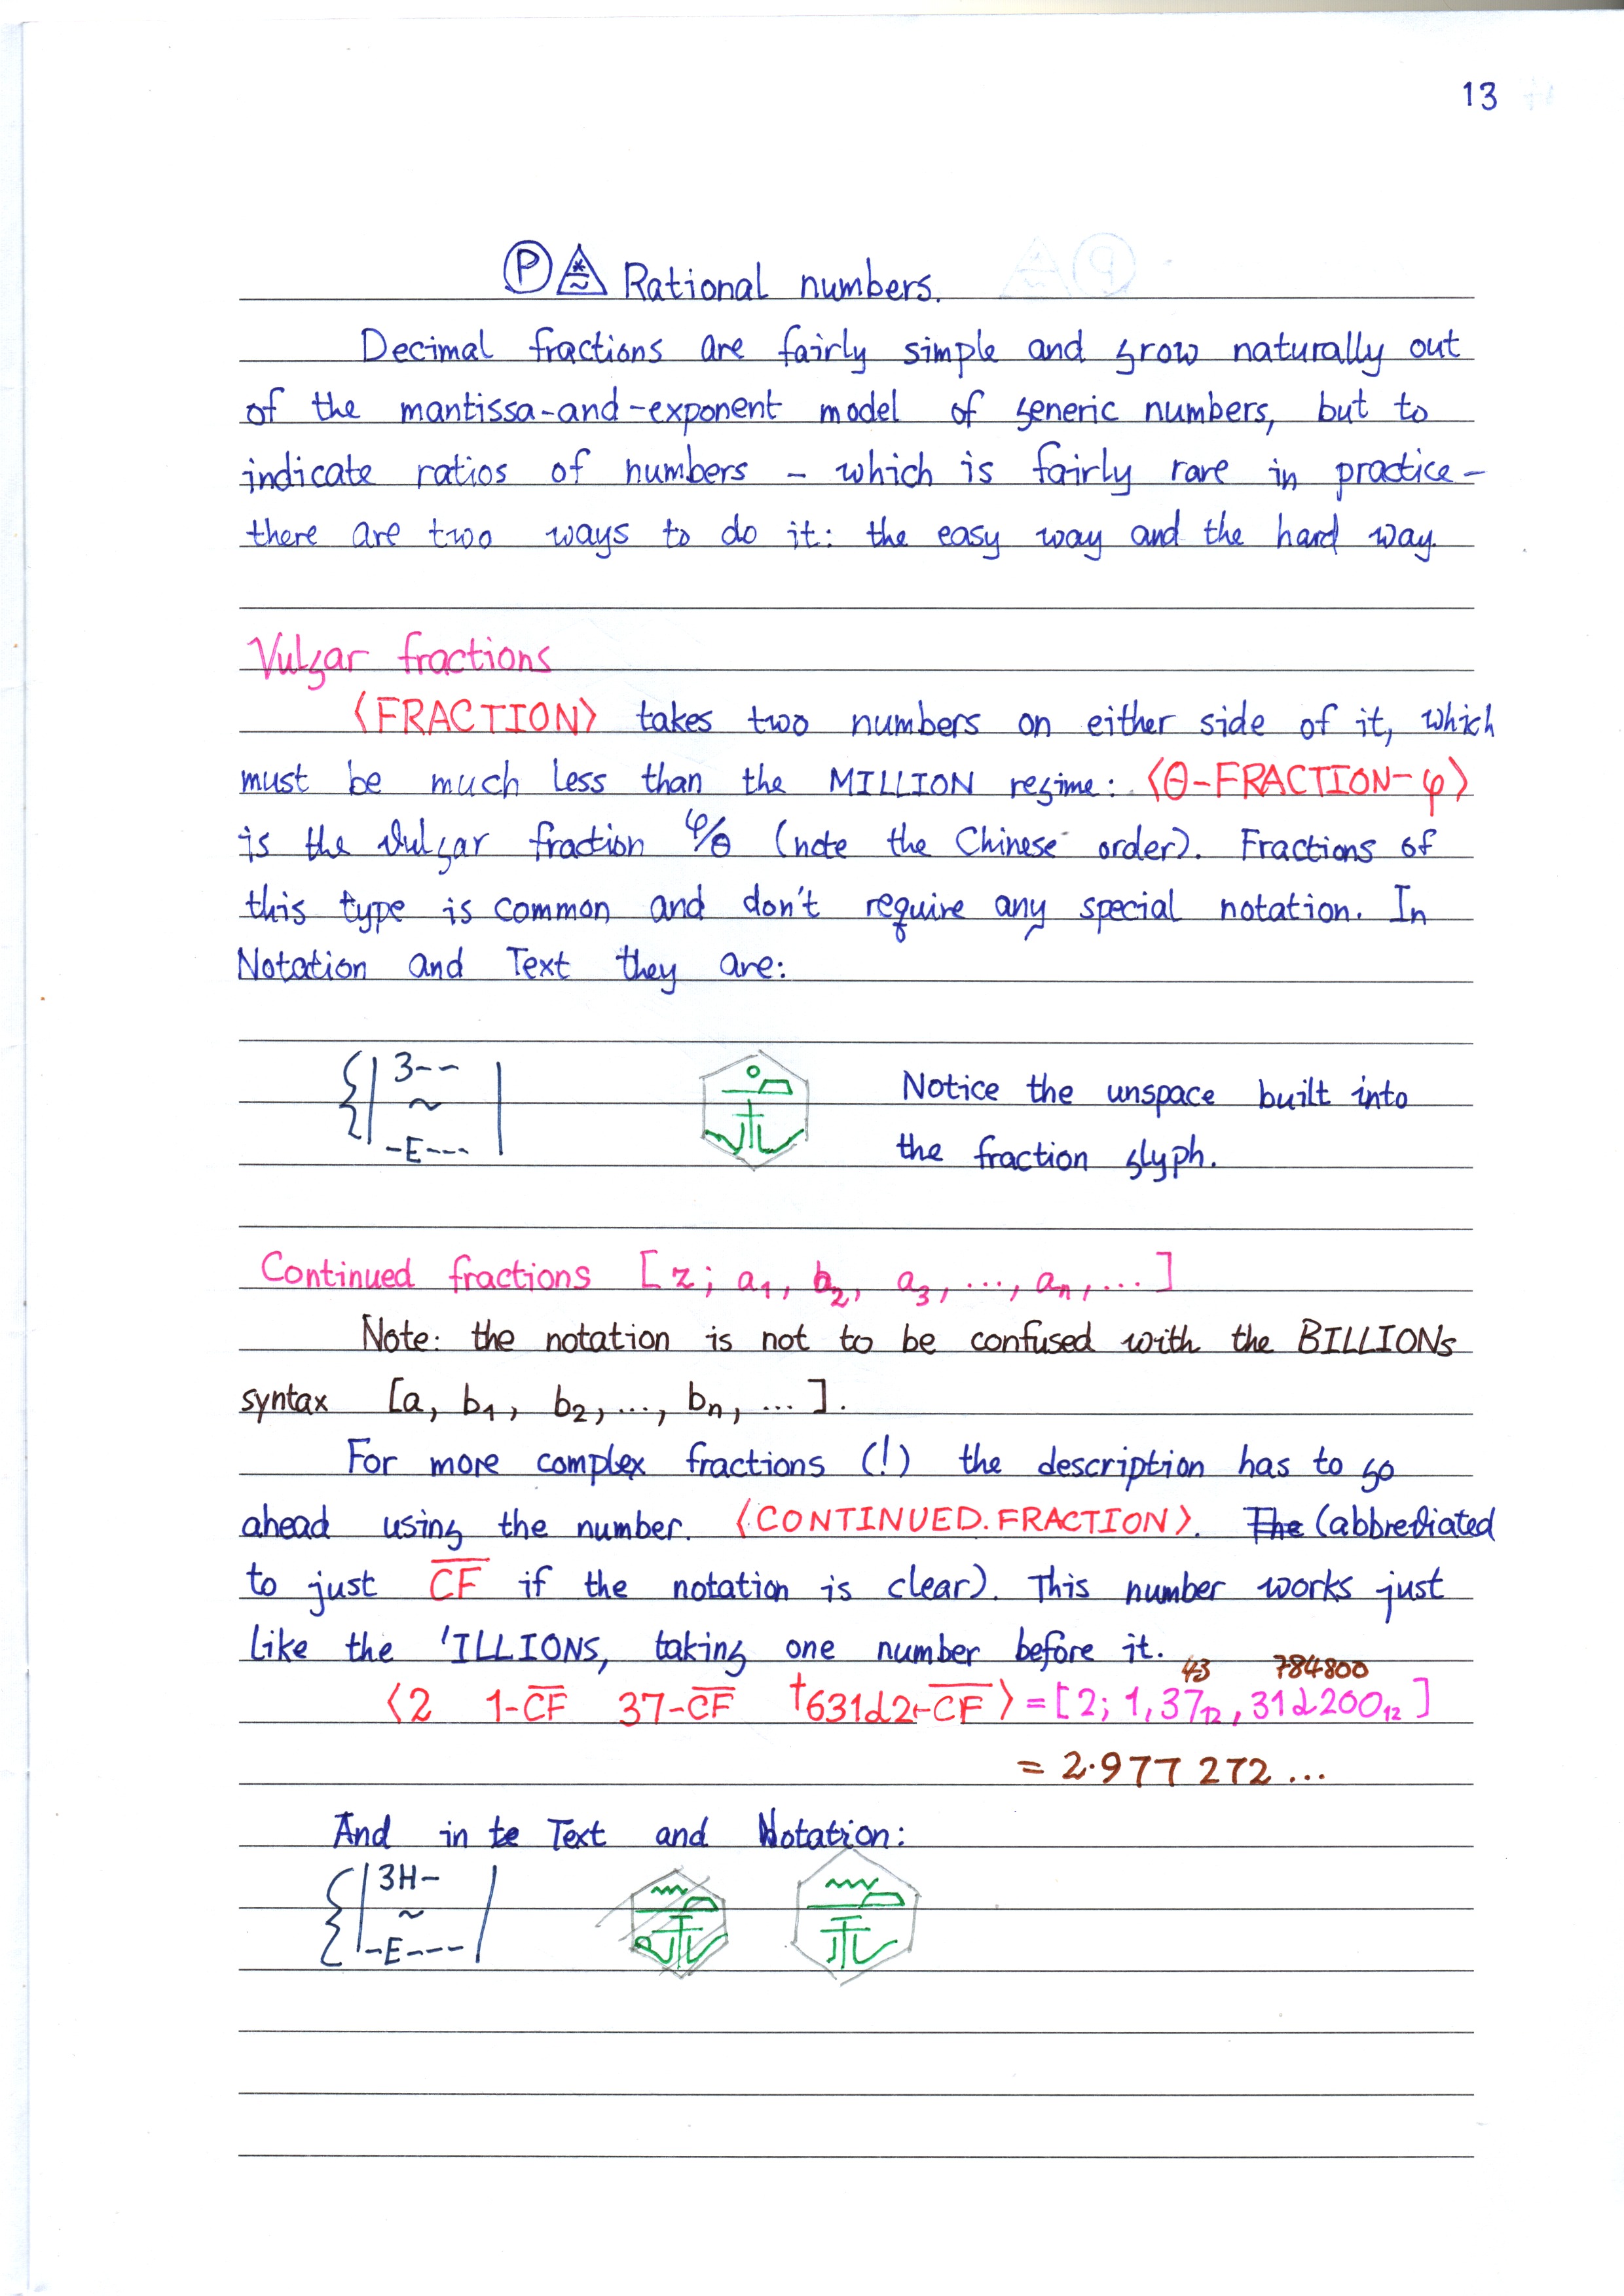 13
Ⓟ Rational numbers.
Decimal fractions are fairly simple and grow naturally out
of the mantissa-and-exponent model of generic numbers, but to
indicate ratios of numbers - which is fairly rare in practice -
there are two ways to do it: the easy way and the hard way.
Vulgar fractions
⟨FRACTION⟩ takes two numbers on either side of it, which
must be much less than the MILLION regime: ⟨θ-FRACTION-φ⟩
is the vulgar fraction φ/θ (note the Chinese order). Fractions of
this type is common and don't require any special notation. In
Notation and Text they are:
3--
~
-E---
Notice the unspace built into
the fraction glyph.
Continued fractions [z; a₁, b₂, a₃, ..., aₙ, ...]
Note: the notation is not to be confused with the BILLIONs
syntax [a, b₁, b₂, ..., bₙ, ...].
For more complex fractions (!) the description has to go
ahead using the number. ⟨CONTINUED.FRACTION⟩. The (abbreviated
to just C̅F̅ if the notation is clear). This number works just
like the 'ILLIONS, taking one number before it.
43 784800
⟨2 1-C̅F̅ 37-C̅F̅ †631d2-C̅F̅⟩ = [2; 1, 37₁₂, 31d200₁₂]
= 2.977 272...
And in te Text and Notation:
3H-
~
-E---